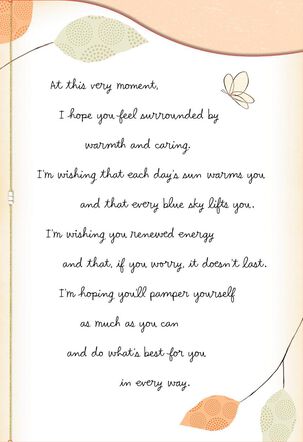 At this very moment,
I hope you feel surrounded by
warmth and caring.
I'm wishing that each day's sun warms you
and that every blue sky lifts you.
I'm wishing you renewed energy
and that, if you worry, it doesn't last.
I'm hoping you'll pamper yourself
as much as you can
and do what's best for you
in every way.